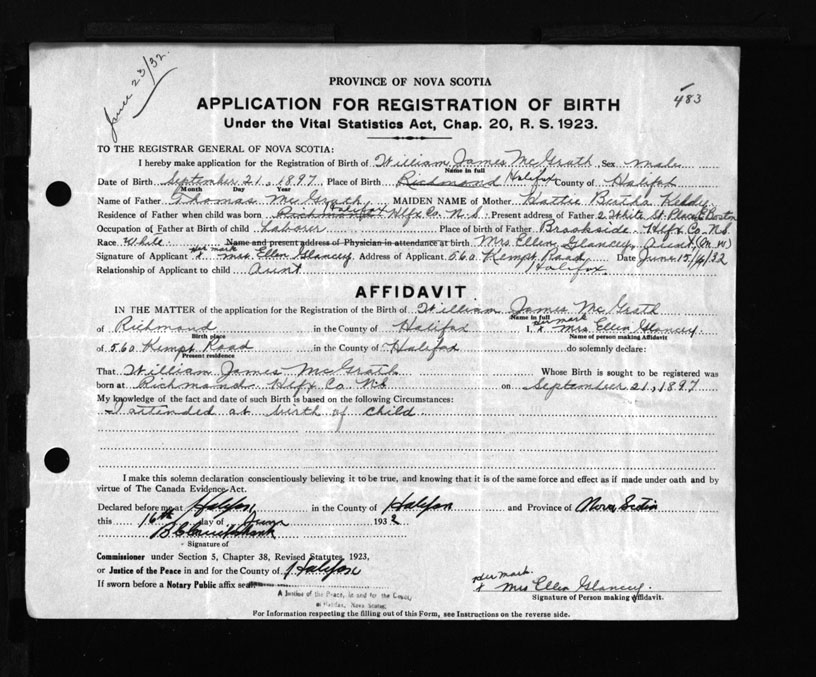 June 23/32.
483
PROVINCE OF NOVA SCOTIA
APPLICATION FOR REGISTRATION OF BIRTH
Under the Vital Statistics Act, Chap. 20, R. S. 1923.
TO THE REGISTRAR GENERAL OF NOVA SCOTIA:
I hereby make application for the Registration of Birth of William James McGrath Sex male
Name in full
Date of Birth September 21, 1897 Place of Birth Richmond Halifax County of Halifax
Month Day Year
Name of Father Thomas McGrath MAIDEN NAME of Mother Hattie Bertha Keddy
Residence of Father when child was born Richmond Halifax Hfx Co. N.S. Present address of Father 2 White St. Place E Boston
Occupation of Father at Birth of child Laborer Place of birth of Father Brookside Hfx Co. N.S.
Race White Name and present address of Physician in attendance at birth Mrs. Ellen Glancey, Aunt, (M.W)
Signature of Applicant her mark x Mrs Ellen Glancey Address of Applicant 560 Kempt Road Halifax Date June 15/6/32
Relationship of Applicant to child Aunt
AFFIDAVIT
IN THE MATTER of the application for the Registration of the Birth of William James McGrath
Name in full
of Richmond in the County of Halifax I, her mark x Mrs Ellen Glancey
Birth place Name of person making Affidavit
of 560 Kempt Road in the County of Halifax do solemnly declare:
Present residence
That William James McGrath Whose Birth is sought to be registered was
born at Richmond Hlfx Co N.S on September 21, 1897
My knowledge of the fact and date of such Birth is based on the following Circumstances:
I attended at birth of child
I make this solemn declaration conscientiously believing it to be true, and knowing that it is of the same force and effect as if made under oath and by
virtue of The Canada Evidence Act.
Declared before me at Halifax in the County of Halifax and Province of Nova Scotia
this 16th day of June 1932
Signature of
Commissioner under Section 5, Chapter 38, Revised Statutes, 1923,
or Justice of the Peace in and for the County of Halifax
If sworn before a Notary Public affix seal
A Justice of the Peace, in and for the County
of Halifax, Nova Scotia
her mark
x Mrs Ellen Glancey.
Signature of Person making Affidavit.
For Information respecting the filling out of this Form, see Instructions on the reverse side.